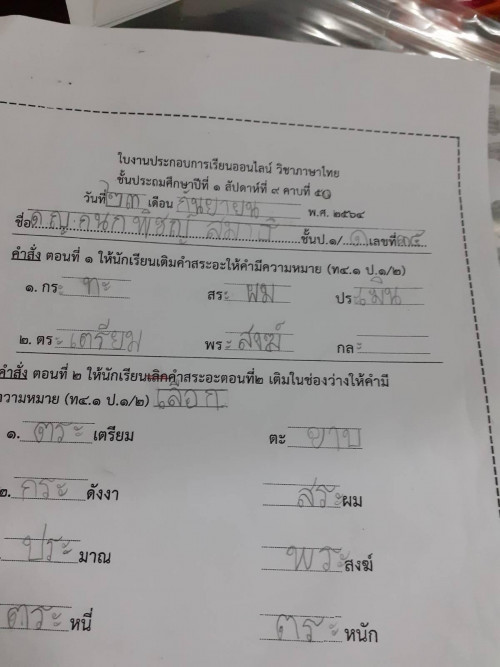 ใบงานประกอบการเรียนออนไลน์ วิชาภาษาไทย
ชั้นประถมศึกษาปีที่ ๑ สัปดาห์ที่ ๙ คาบที่ ๕๐
วันที่ ๒๓ เดือน กันยายน พ.ศ. ๒๕๖๔
ชื่อ ด.ญ. กนกพิชญ์ ชั้นป.๑/๑ เลขที่ ๓๕
คำสั่ง ตอนที่ ๑ ให้นักเรียนเติมคำสระอะให้คำมีความหมาย (ท๔.๑ ป.๑/๒)
๑. กระ ทะ สระ ผม ประ เมิน
๒. ตระ เตรียม พระ สงฆ์ กละ
คำสั่ง ตอนที่ ๒ ให้นักเรียนเลิกคำสระอะตอนที่๒ เติมในช่องว่างให้คำมี
ความหมาย (ท๔.๑ ป.๑/๒) เลือก
๑. ตระ เตรียม ตะ ขาบ
๒. กระ ดังงา สระ ผม
ประ มาณ พระ สงฆ์
ตระ หนี่ ตระ หนัก